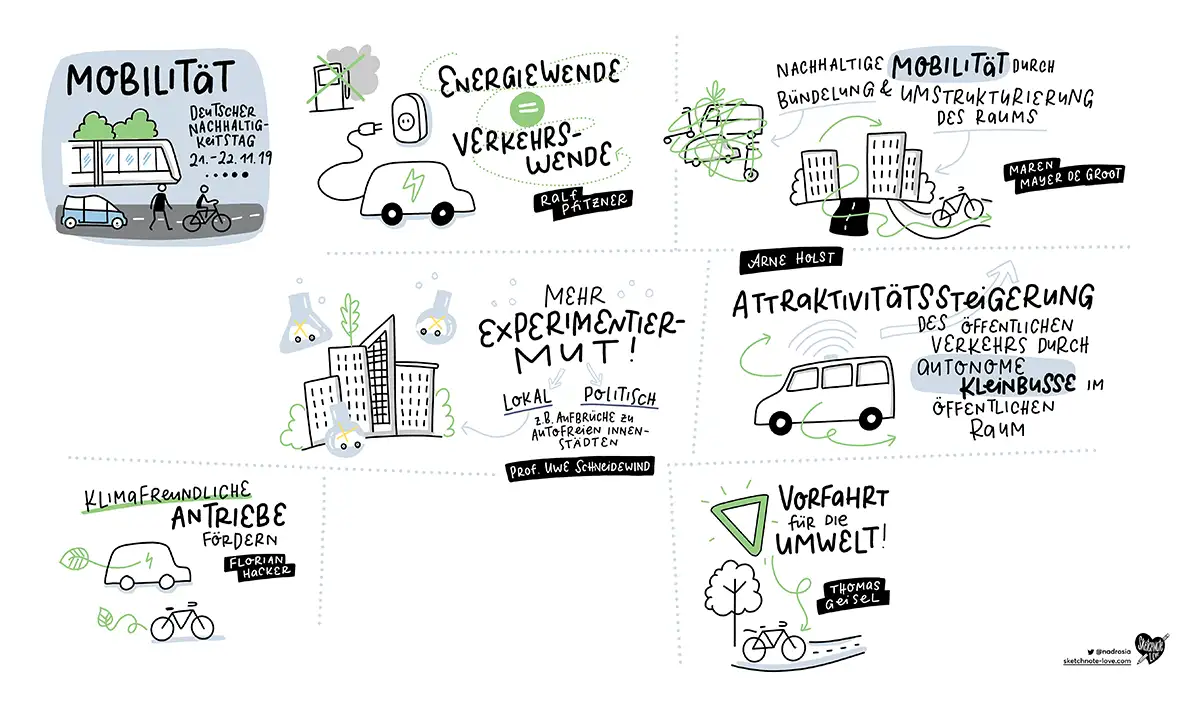 MOBILITÄT
DEUTSCHER
NACHHALTIG-
KEITSTAG
21.-22.11.19
ENERGIEWENDE
=
VERKEHRS-
WENDE
RALF
PFITZNER
NACHHALTIGE MOBILITÄT DURCH
BÜNDELUNG & UMSTRUKTURIERUNG
DES RAUMS
MAREN
MAYER DE GROOT
MEHR
EXPERIMENTIER-
MUT!
LOKAL POLITISCH
Z.B. AUFBRÜCHE ZU
AUTOFREIEN INNEN-
STÄDTEN
PROF. UWE SCHNEIDEWIND
ARNE HOLST
ATTRAKTIVITÄTSSTEIGERUNG
DES ÖFFENTLICHEN
VERKEHRS DURCH
AUTONOME
KLEINBUSSE IM
ÖFFENTLICHEN
RAUM
KLIMAFREUNDLICHE
ANTRIEBE
FÖRDERN
FLORIAN
HACKER
VORFAHRT
FÜR DIE
UMWELT!
THOMAS
GEISEL
@nadrosia
sketchnote-love.com
Sketchnote
Love